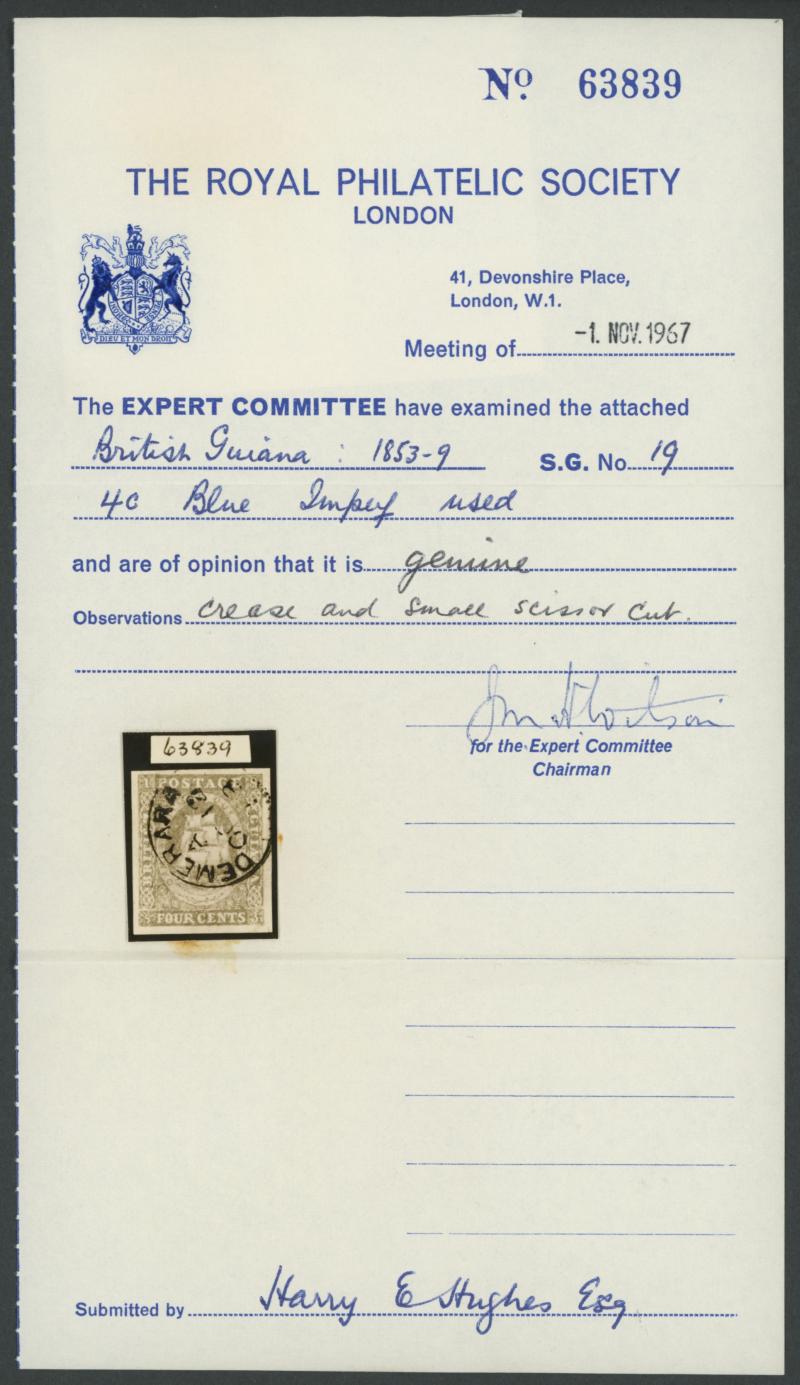 No. 63839
THE ROYAL PHILATELIC SOCIETY
LONDON
41, Devonshire Place,
London, W.1.
DIEU ET MON DROIT
Meeting of -1. NOV. 1967
The EXPERT COMMITTEE have examined the attached
British Guiana : 1853-9 S.G. No. 19
4c Blue Imperf used
and are of opinion that it is genuine
Observations crease and small scissor cut.
for the Expert Committee
Chairman
63839
POSTAGE
DEMERARA
FOUR CENTS
Submitted by Harry E Hughes Esq